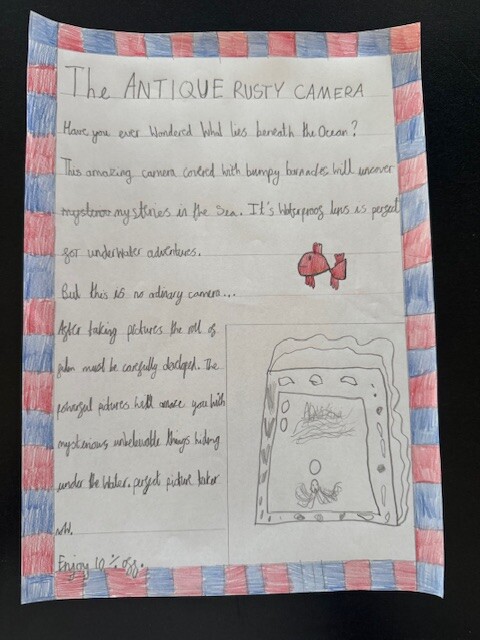 The ANTIQUE RUSTY CAMERA
Have you ever wondered what lies beneath the Ocean?
This amazing camera covered with bumpy barnacles will uncover
mysteries in the Sea. It's waterproof lens is perfect
for underwater adventures.
But this is no odinary camera...
After taking pictures the roll of
film must be carefully devloped. The
powerful pictures will amaze you with
mysterious unbelievable things hiding
under the water. perfect picture taker
Enjoy 10% off.